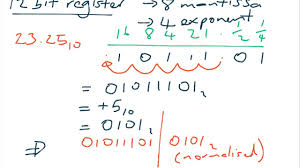 12 bit register → 8 mantissa
→ 4 exponent
23.25₁₀
16 8 4 2 1 . ½ ¼
1 0 1 1 1 . 0 1
= 01011101₂
= +5₁₀
= 0101₂
⇒ 01011101 | 0101₂
(normalised)